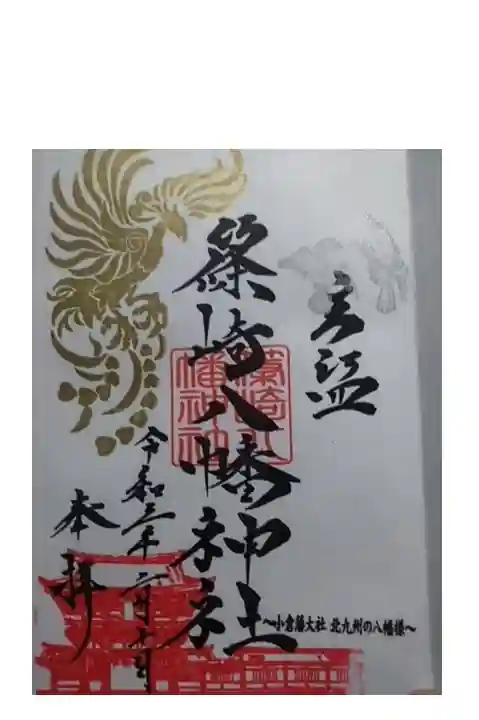 篠崎八幡神社
篠崎八
幡神社
令和三年六月
奉拝
〜小倉藩大社 北九州の八幡様〜